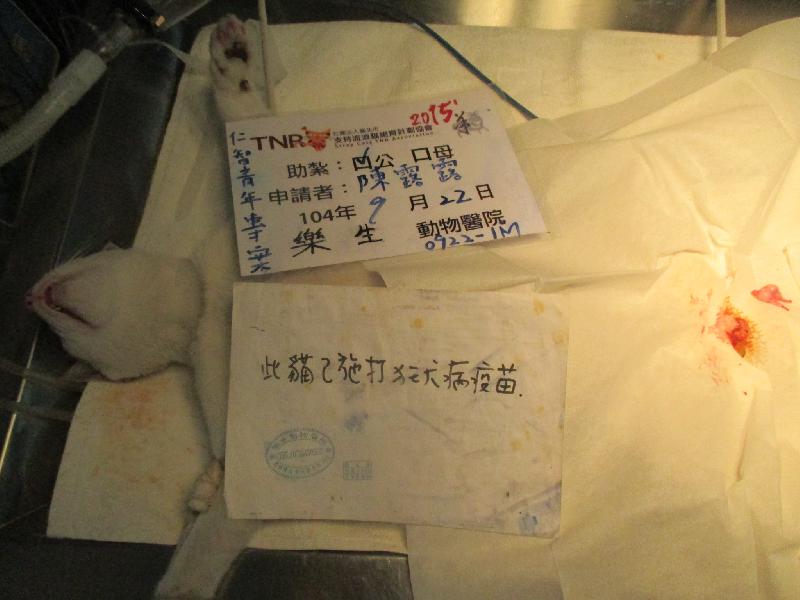 2015
TNR
支持流浪貓絕育計劃協會
Stray Cats TNR Association
助紮：口公 口母
申請者：陳露露
104年 9月22日
樂生 動物醫院
0922-1M
仁智青年專案
此貓已施打狂犬病疫苗.